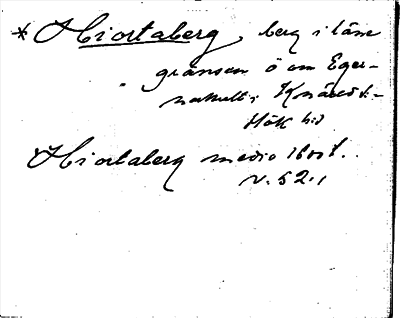 * Hiortaberg, berg i läns
gränsen ö om Eger-
nahult i Knäred s:-
Hök h:d
Hiortaberg medio 1600 t.
v. 52.,